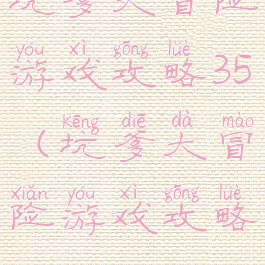 坑爹大冒险
yóu xì gōng lüè
游戏攻略35
kēng diē dà mào
(坑爹大冒
xiǎn yóu xì gōng lüè
险游戏攻略